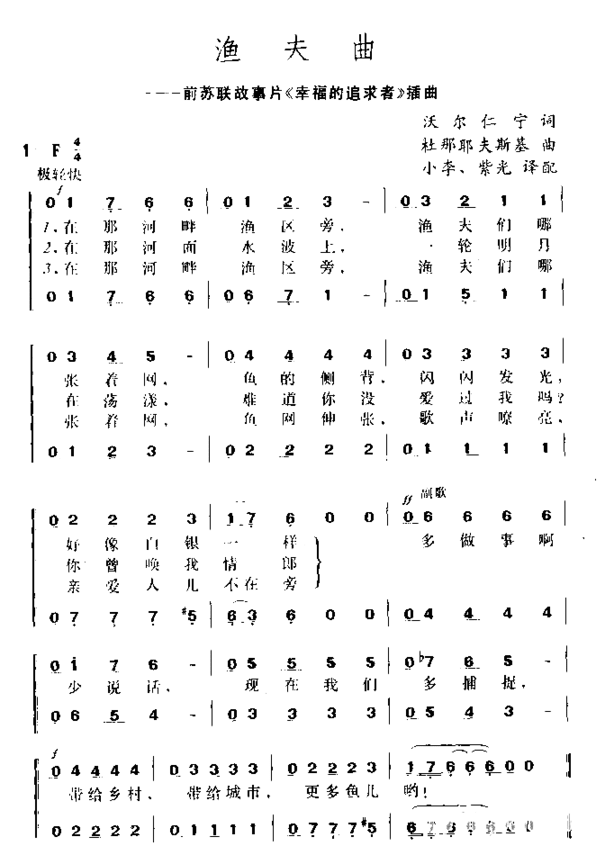 渔夫曲
----前苏联故事片《幸福的追求者》插曲
沃尔仁宁 词
杜那耶夫斯基 曲
小李、紫光 译配
1 F 4/4
极轻快
f
0 1 7 6 6 | 0 1 2 3 - | 0 3 2 1 1
1.在那河畔 渔区旁, 渔夫们哪
2.在那河面 水波上, 一轮明月
3.在那河畔 渔区旁, 渔夫们哪
0 1 7 6 6 | 0 6 7 1 - | 0 1 5 1 1
0 3 4 5 - | 0 4 4 4 4 | 0 3 3 3 3
张着网, 鱼的侧背, 闪闪发光,
在荡漾, 难道你没 爱过我吗?
张着网, 鱼网伸张, 歌声嘹亮,
0 1 2 3 - | 0 2 2 2 2 | 0 1 1 1 1
ff 副歌
0 2 2 2 3 | 1 7 6 0 0 | 0 6 6 6 6
好像白银 一样 多做事啊
你曾唤我 情郎
亲爱人儿 不在旁
0 7 7 7 #5 | 6 3 6 0 0 | 0 4 4 4 4
0 1 7 6 - | 0 5 5 5 5 | 0 b7 6 5 -
少说话, 现在我们 多捕捉,
0 6 5 4 - | 0 3 3 3 3 | 0 5 4 3 -
f
0 4 4 4 4 | 0 3 3 3 3 | 0 2 2 2 3 | 1 7 6 6 6 0 0
带给乡村、 带给城市, 更多鱼儿 哟!
0 2 2 2 2 | 0 1 1 1 1 | 0 7 7 7 #5